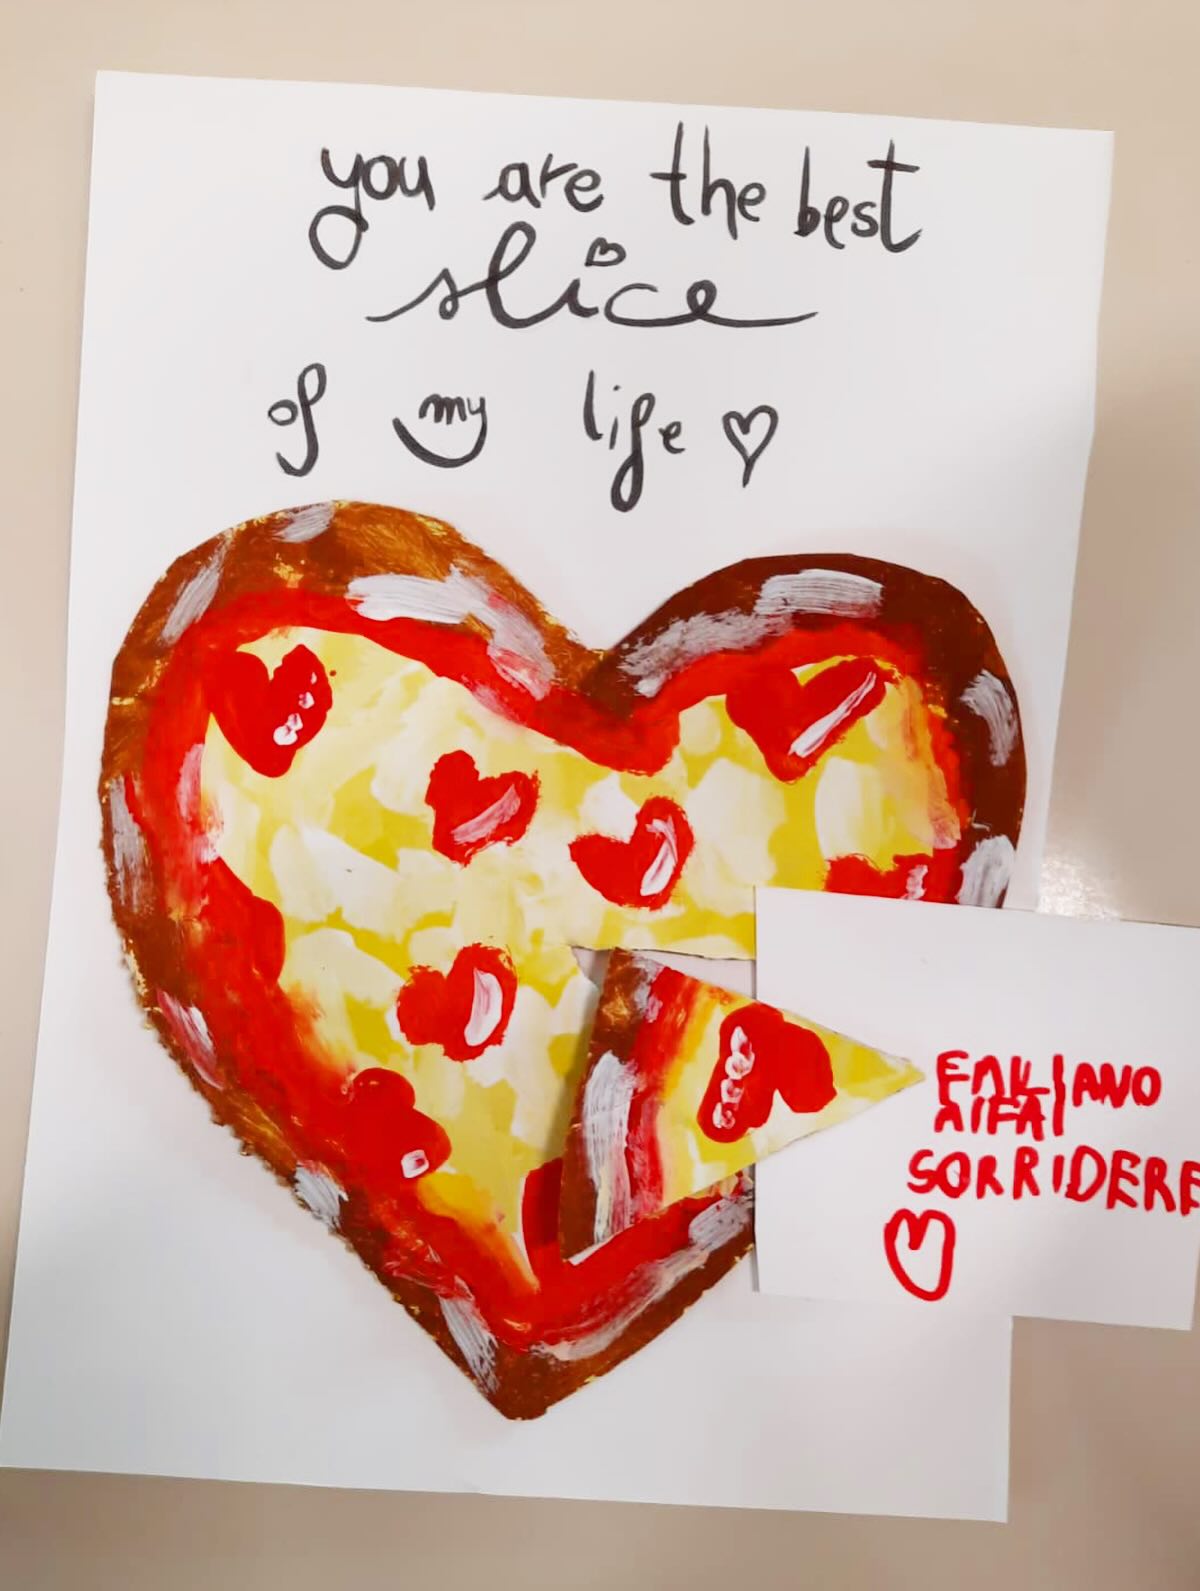 you are the best
slice
of my life
SORRIDERE